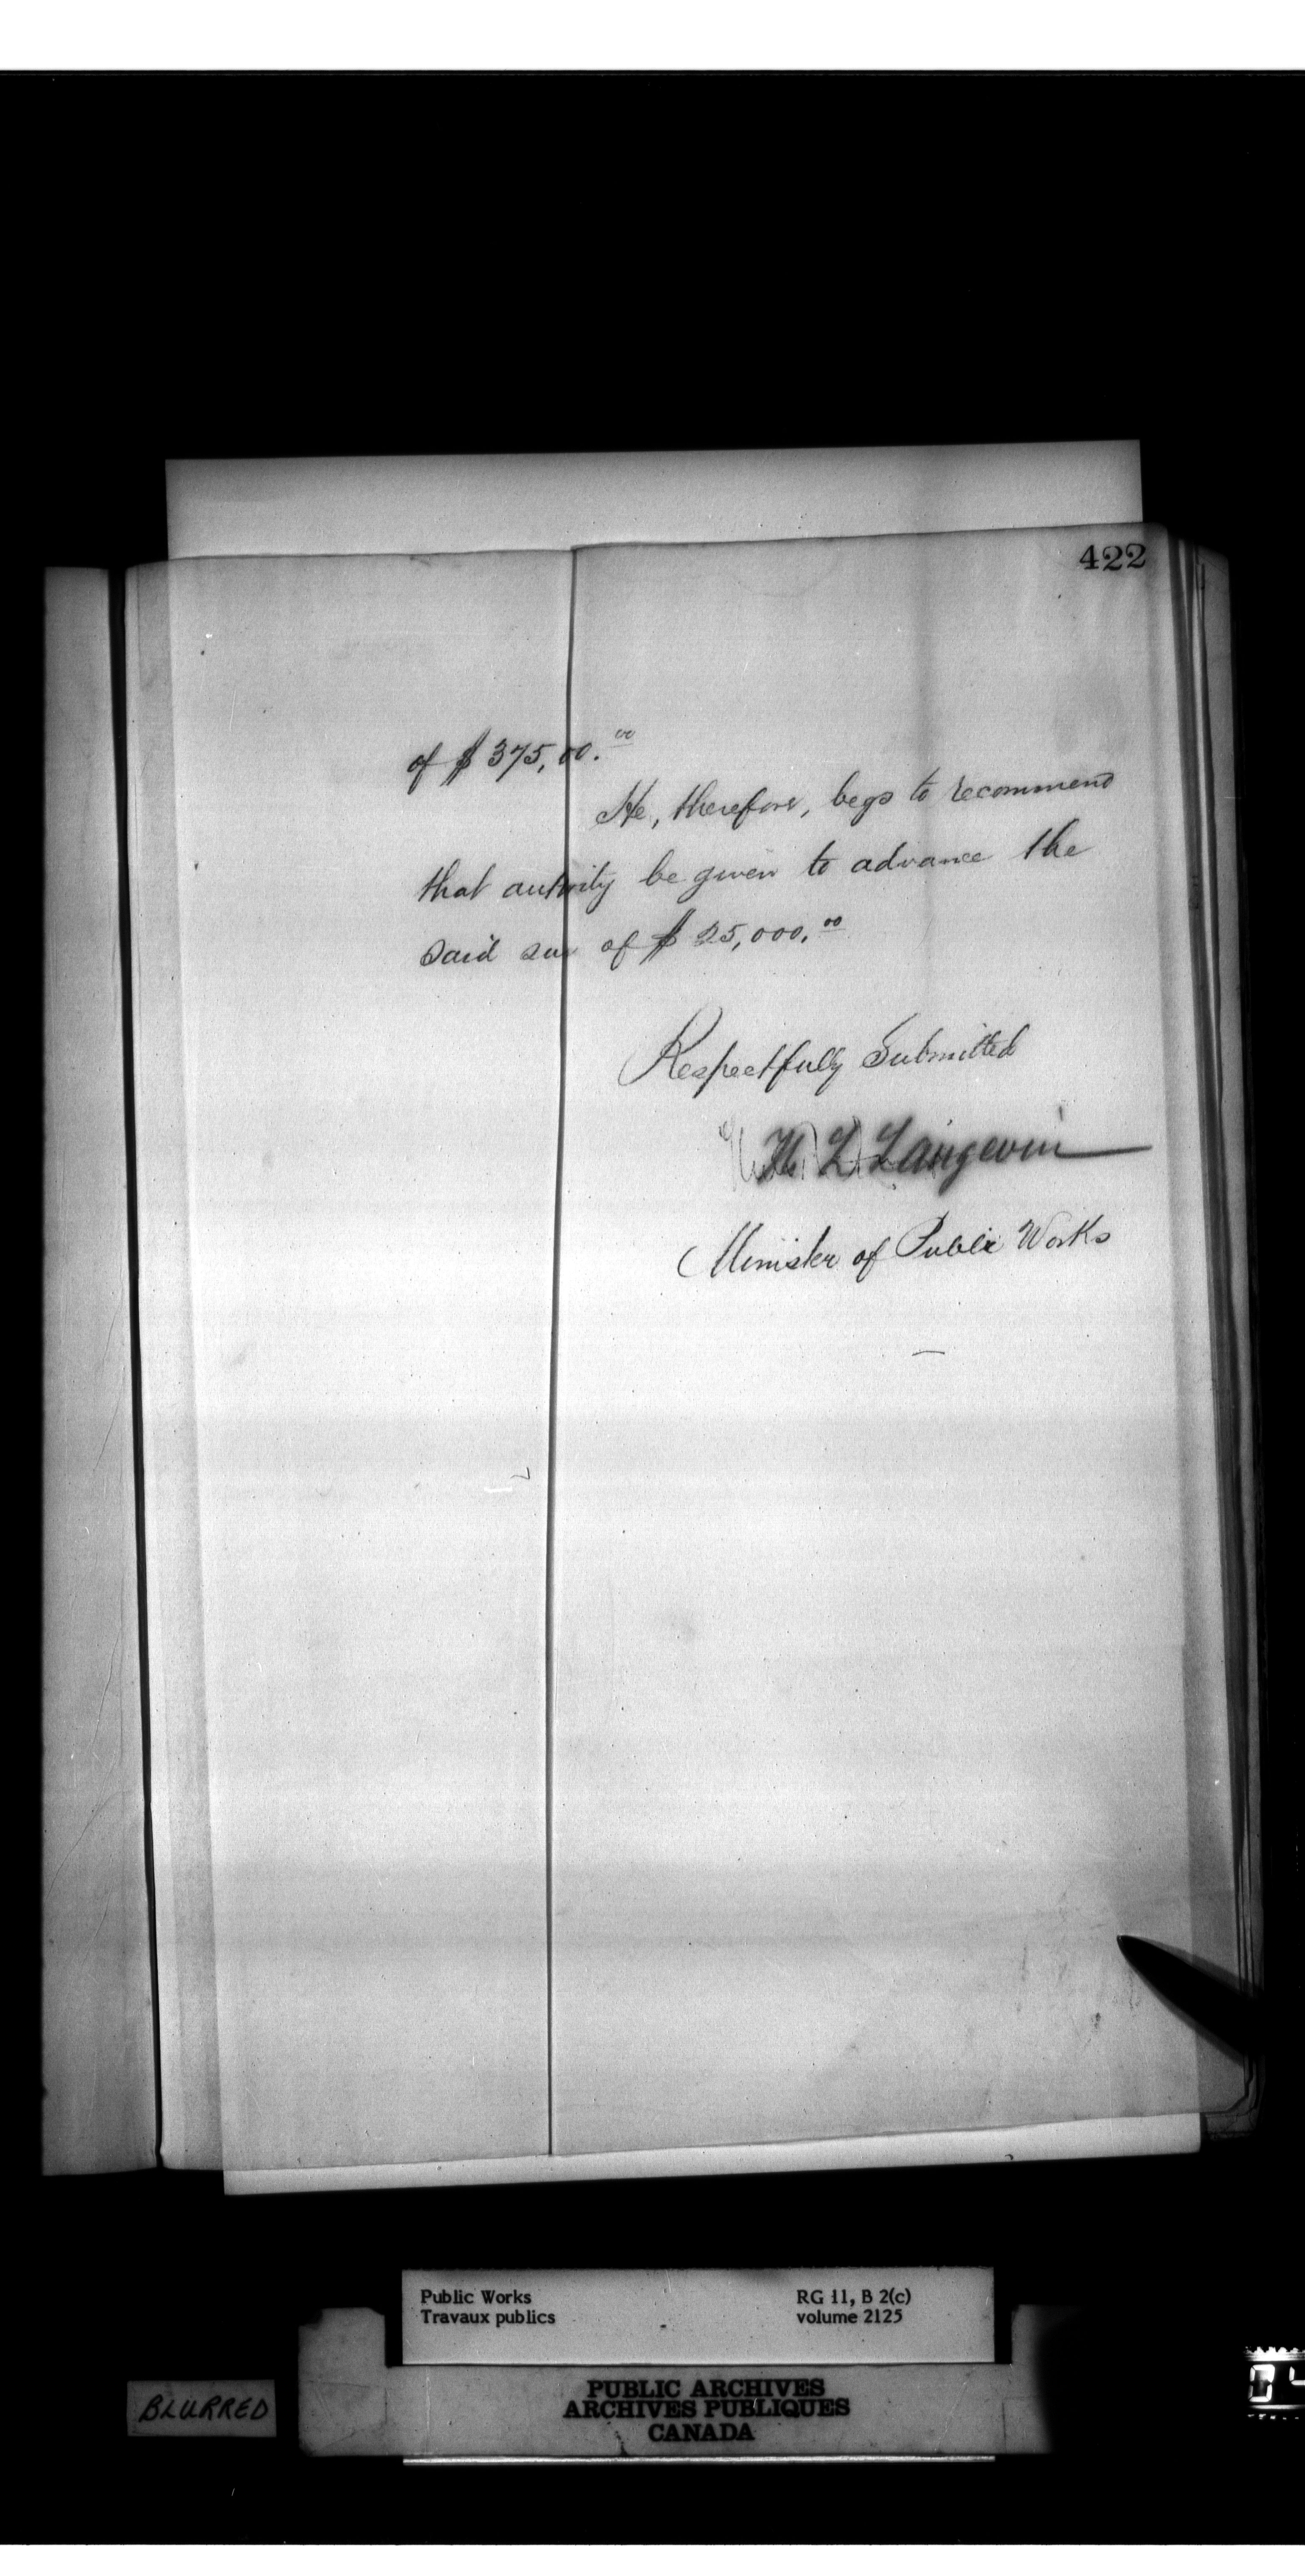 422
of $ 375,00.00
He, therefore, begs to recommend
that autority be given to advance the
said sum of $ 25,000.00
Respectfully Submitted
H L Langevin
Minister of Public Works
Public Works
Travaux publics
RG 11, B 2(c)
volume 2125
BLURRED
PUBLIC ARCHIVES
ARCHIVES PUBLIQUES
CANADA